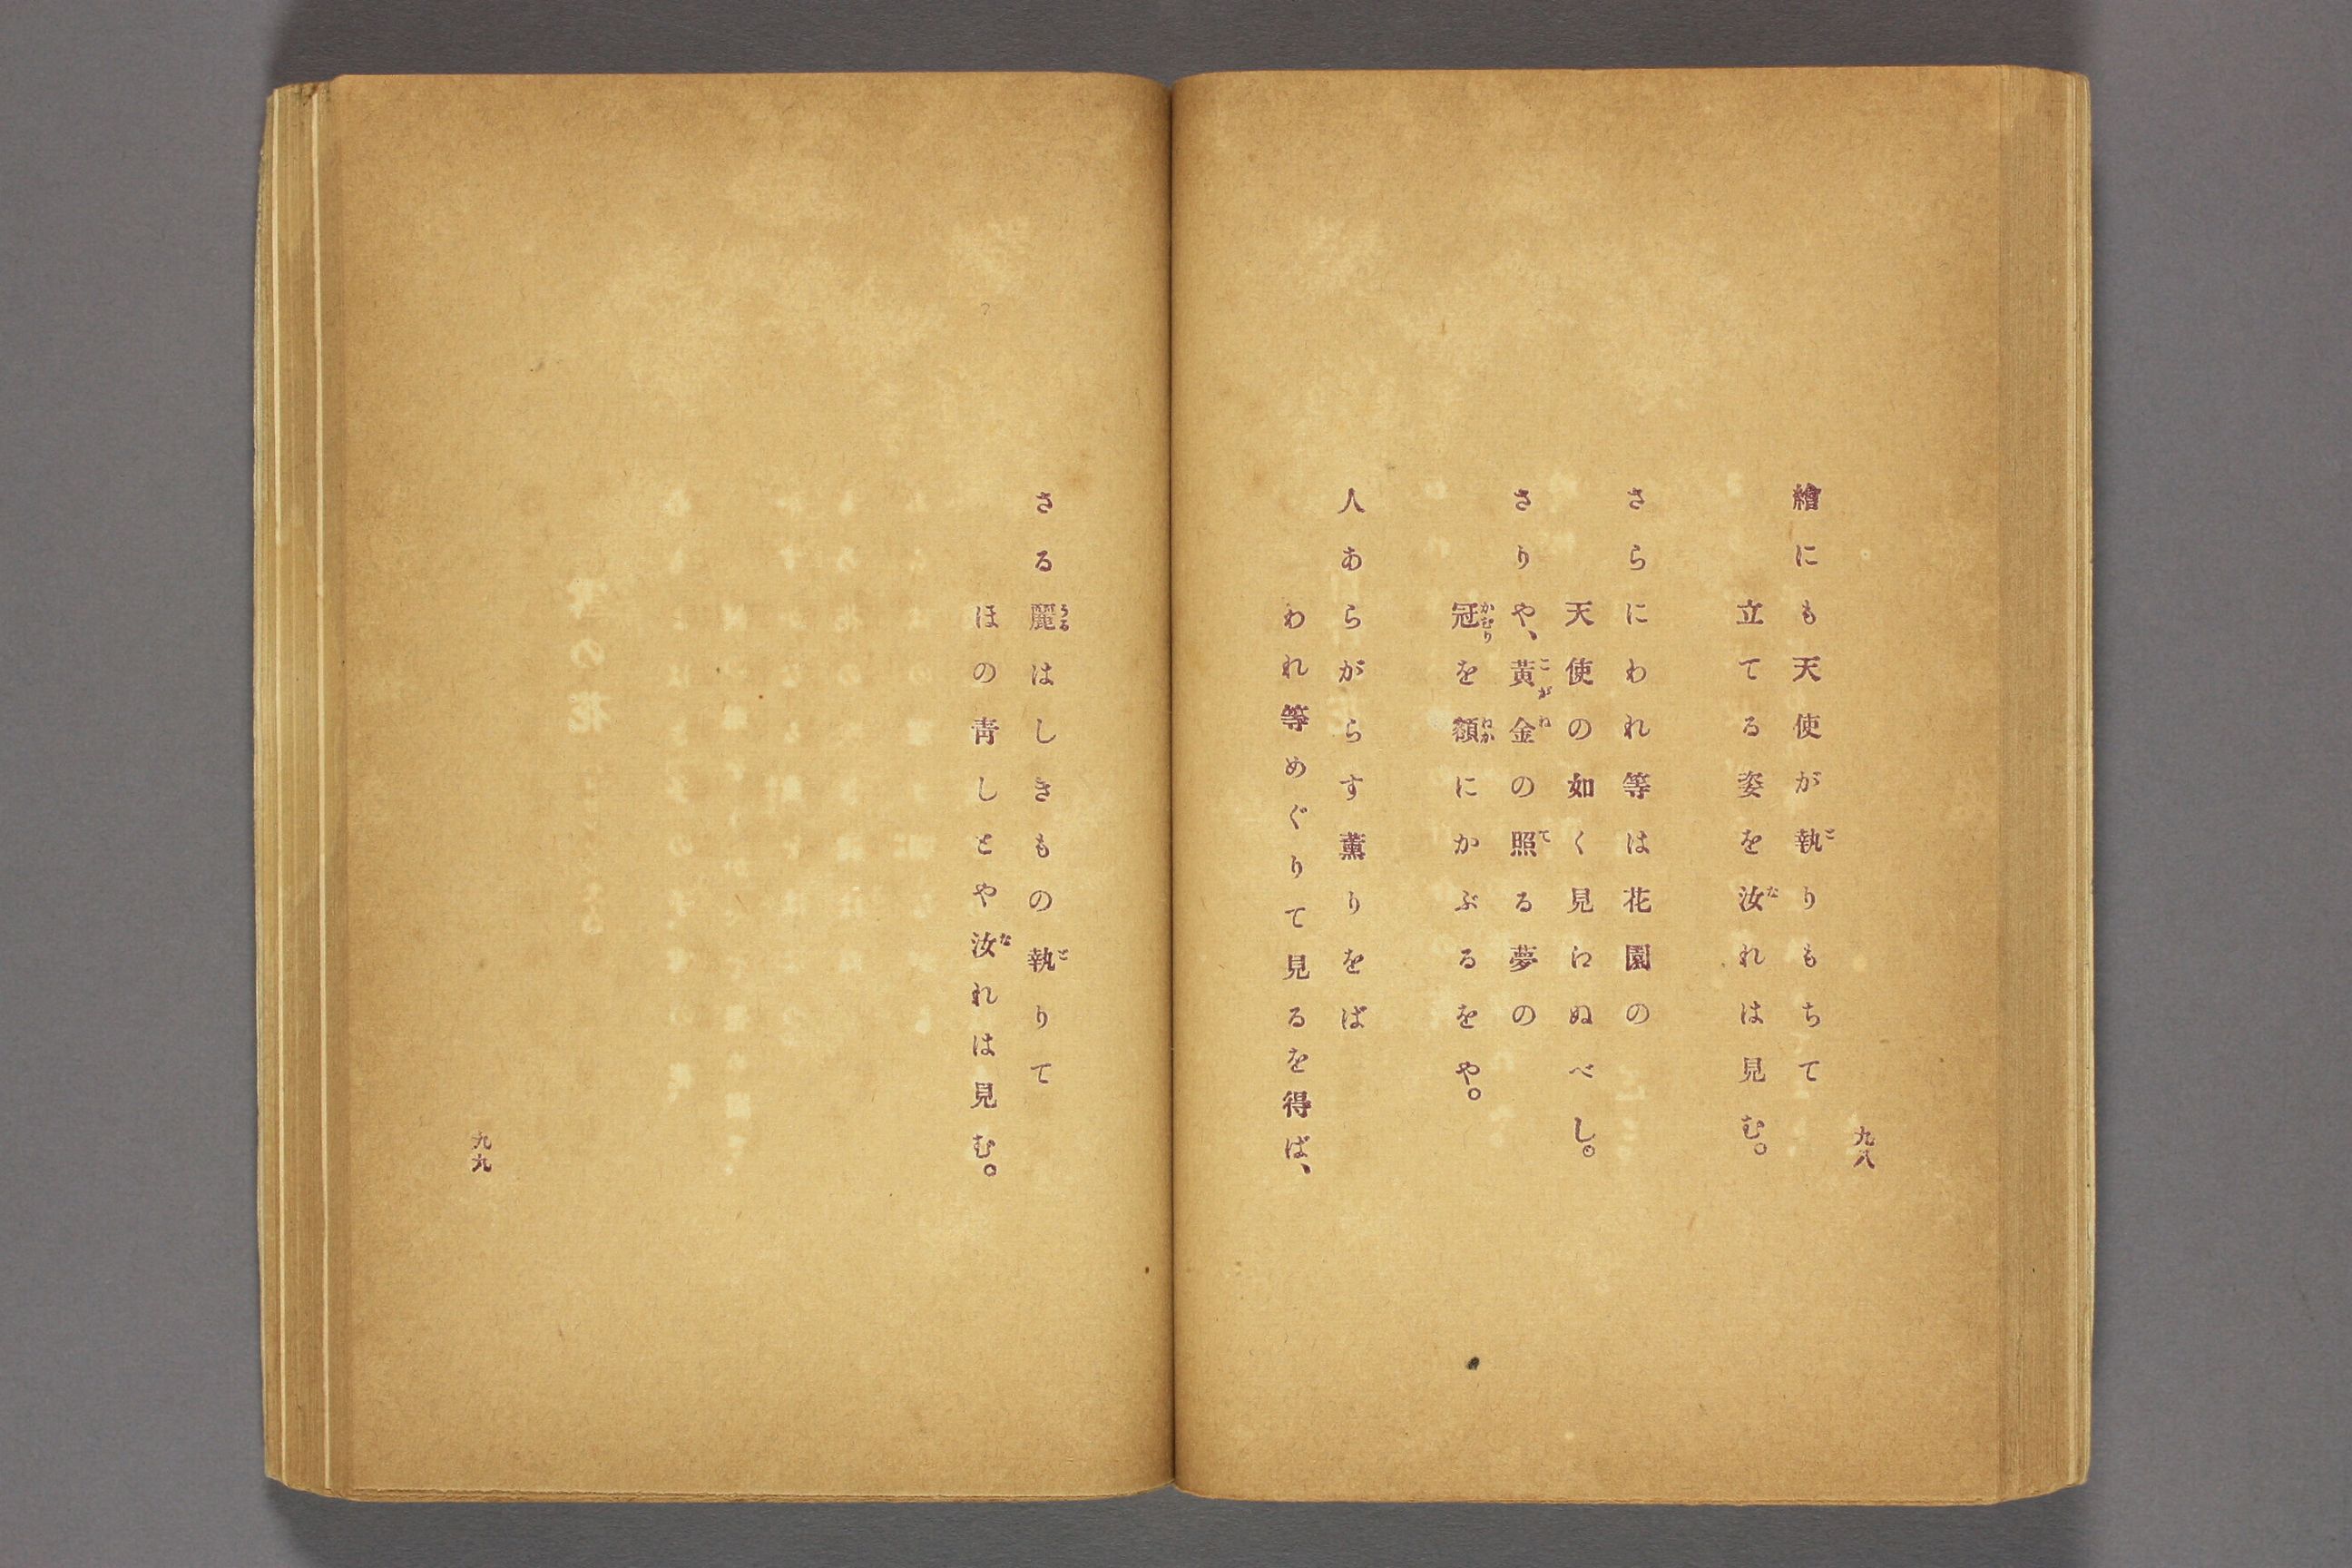 九八
繪にも天使が執りもちて
立てる姿を汝れは見む。
さらにわれ等は花園の
天使の如く見にぬべし。
さりや、黄金の照る夢の
冠を額にかぶるをや。
人あらがらす薫りをば
われ等めぐりて見るを得ば、
さる麗はしきもの執りて
ほの靑しとや汝れは見む。
九九